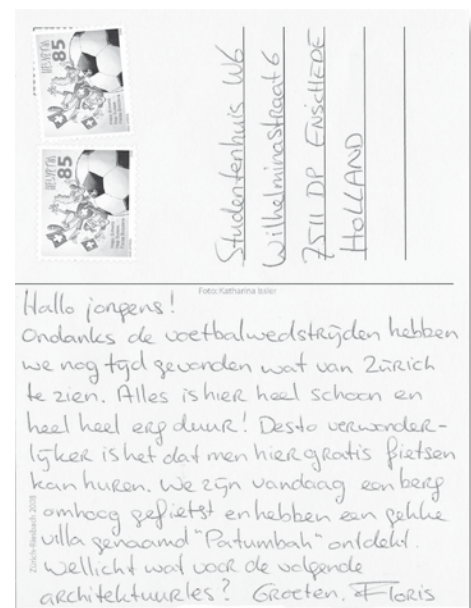 HELVETIA 85
HELVETIA 85
Studentenhuis W6
Wilhelminastraat 6
7511 DP ENSCHEDE
HOLLAND
Foto: Katharina Issler
Zürich-Riesbach 2008
Hallo jongens!
Ondanks de voetbalwedstrijden hebben
we nog tijd gevonden wat van Zürich
te zien. Alles is hier heel schoon en
heel heel erg duur! Desto verwonder-
lijker is het dat men hier gratis fietsen
kan huren. We zijn vandaag een berg
omhoog gefietst en hebben een gekke
villa genaamd "Patumbah" ontdekt.
Wellicht wat voor de volgende
architektuurles? Groeten, Floris